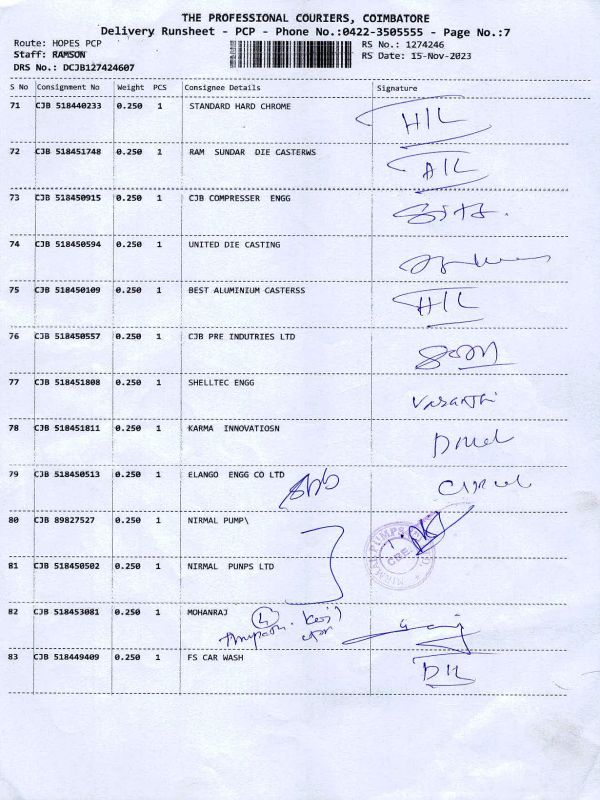 THE PROFESSIONAL COURIERS, COIMBATORE
Delivery Runsheet - PCP - Phone No.:0422-3505555 - Page No.:7
Route: HOPES PCP RS No.: 1274246
Staff: RAMSON RS Date: 15-Nov-2023
DRS No.: DCJB127424607
S No Consignment No Weight PCS Consignee Details Signature
71 CJB 518440233 0.250 1 STANDARD HARD CHROME H/L
72 CJB 518451748 0.250 1 RAM SUNDAR DIE CASTERWS A/L
73 CJB 518450915 0.250 1 CJB COMPRESSER ENGG
74 CJB 518450594 0.250 1 UNITED DIE CASTING
75 CJB 518450109 0.250 1 BEST ALUMINIUM CASTERSS H/L
76 CJB 518450557 0.250 1 CJB PRE INDUTRIES LTD
77 CJB 518451808 0.250 1 SHELLTEC ENGG Vasanthi
78 CJB 518451811 0.250 1 KARMA INNOVATIOSN
79 CJB 518450513 0.250 1 ELANGO ENGG CO LTD
80 CJB 89827527 0.250 1 NIRMAL PUMP\
NIRMAL PUMPS
CBE
81 CJB 518450502 0.250 1 NIRMAL PUNPS LTD
82 CJB 518453081 0.250 1 MOHANRAJ
83 CJB 518449409 0.250 1 FS CAR WASH